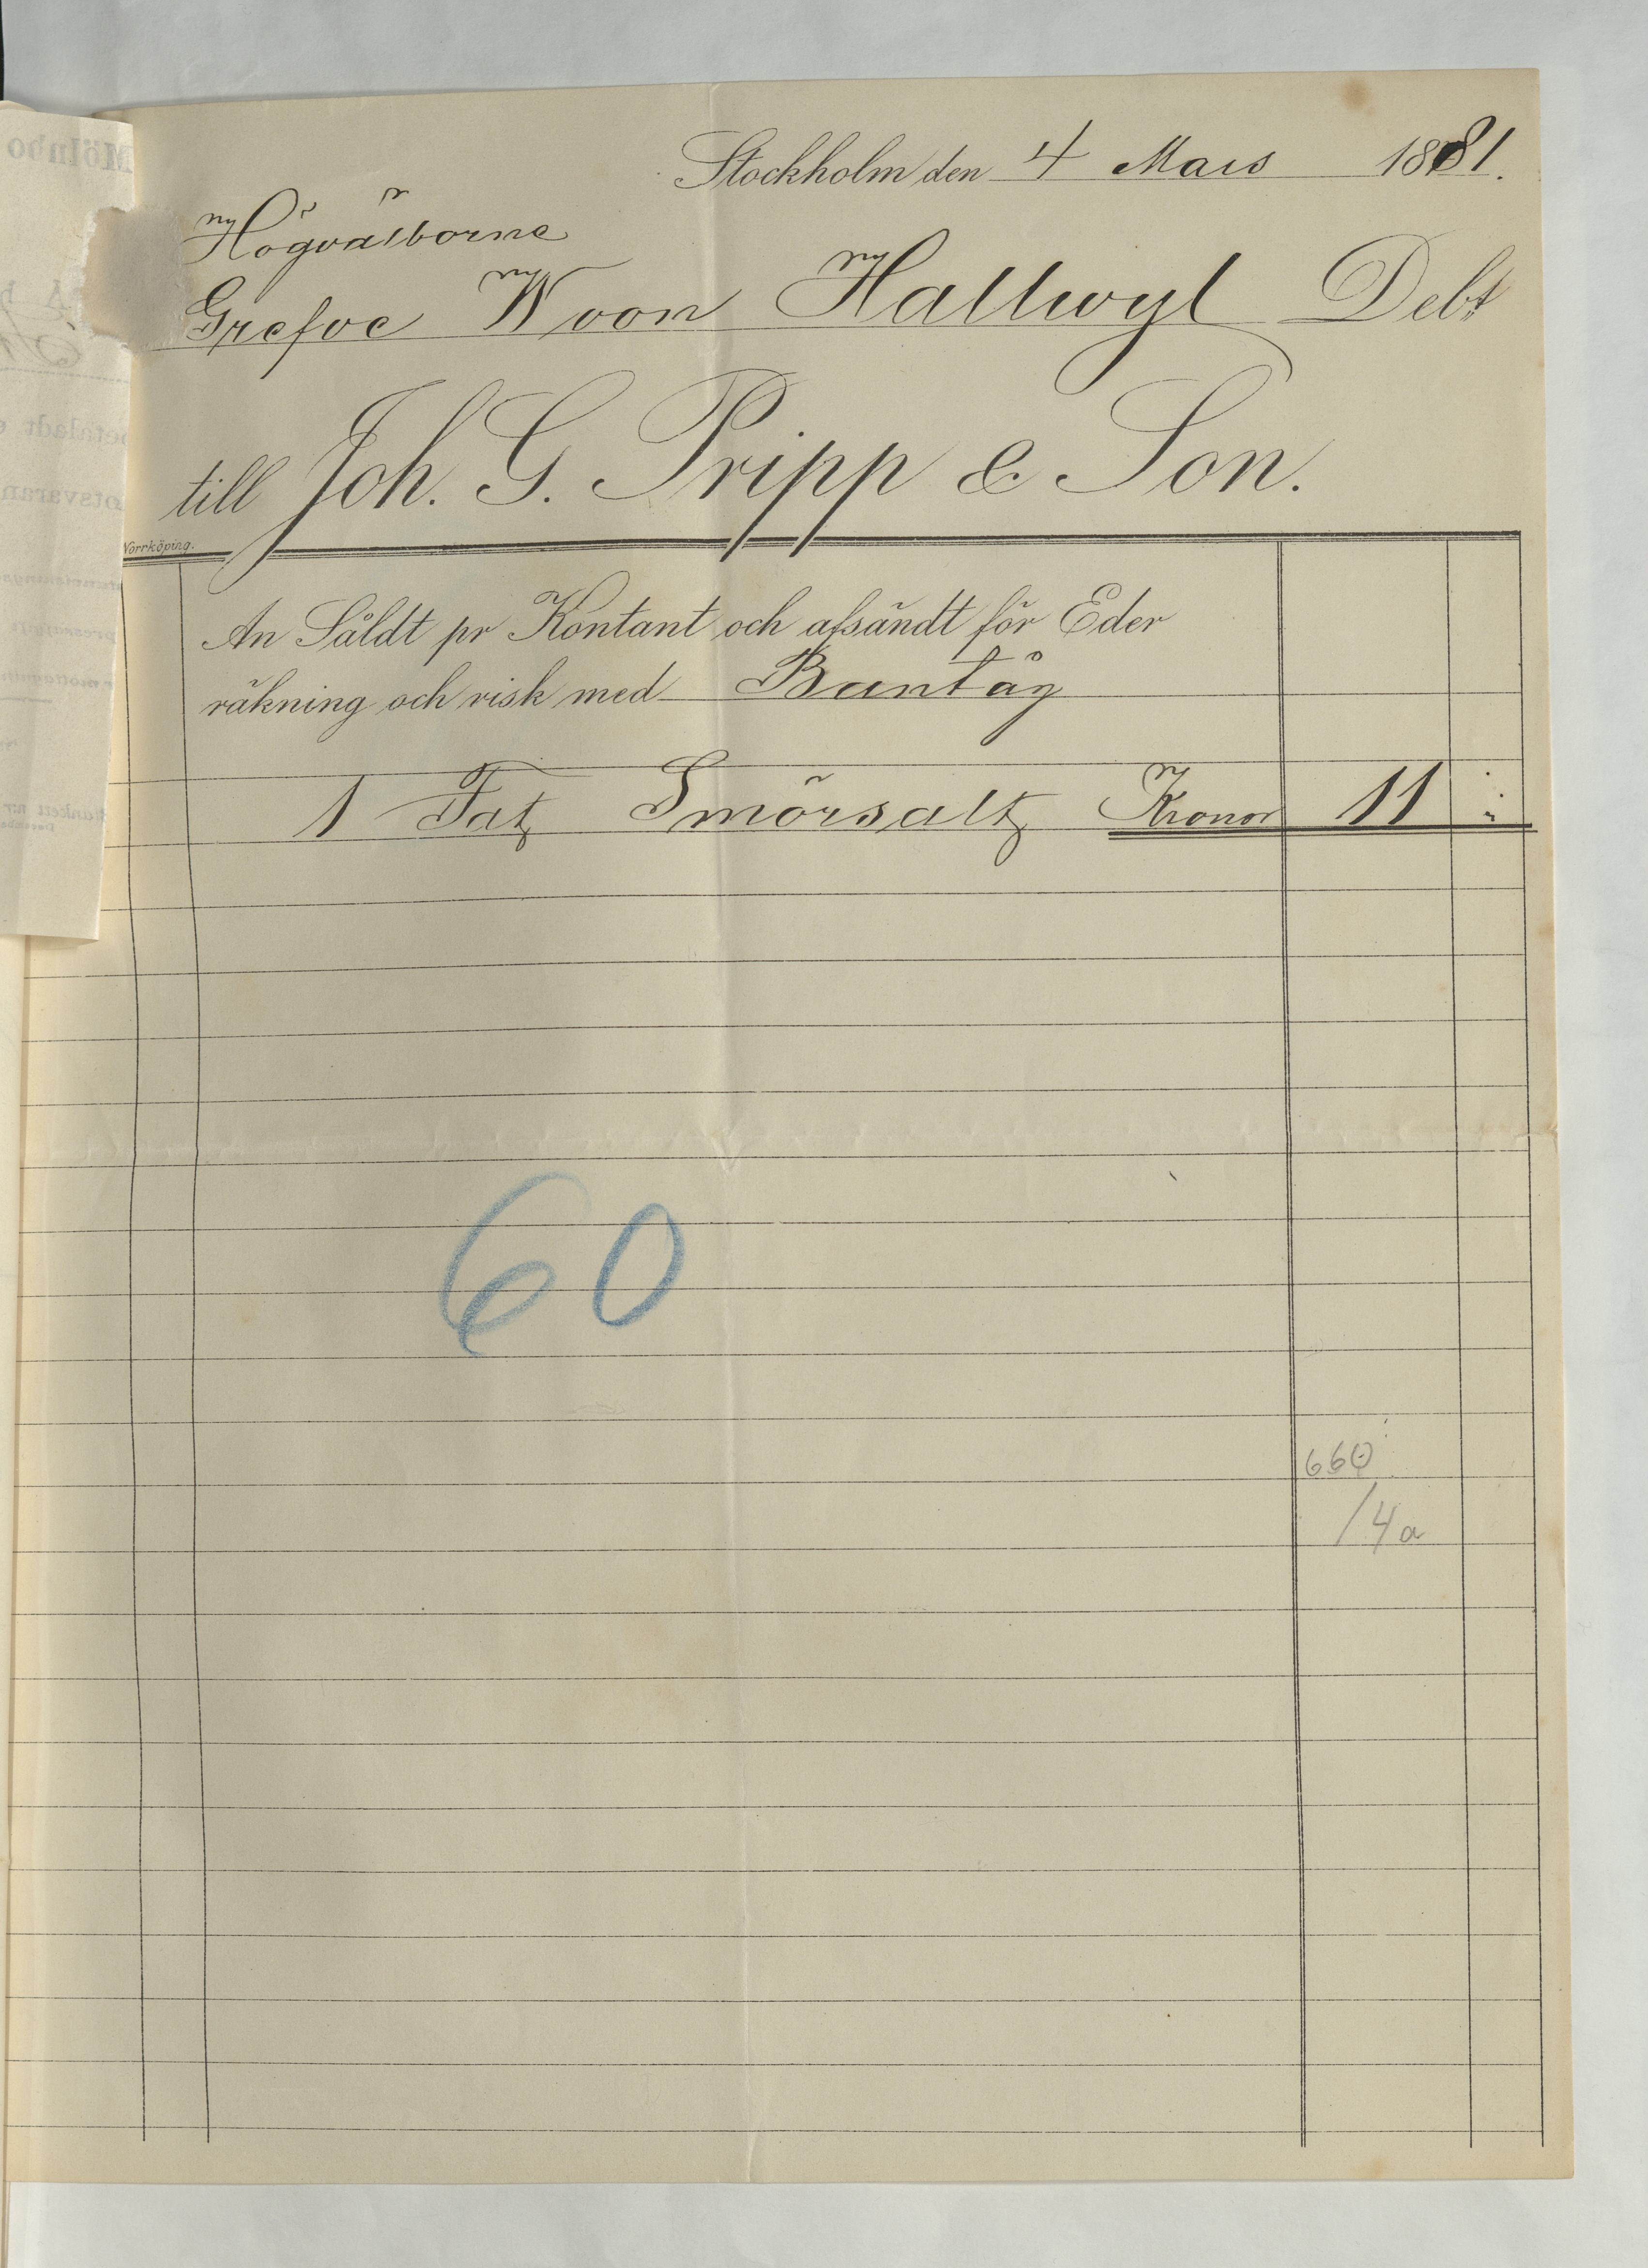 Stockholm den 4 Mars 1881.
Högvälborne
Grefve W von Hallwyl Debt
till Joh. G. Pripp & Son.
Norrköping.
An Såldt pr Kontant och afsändt för Eder
räkning och risk med Bantåg
1 Fat Smörsalt Kronor 11 "
60
660
/4a